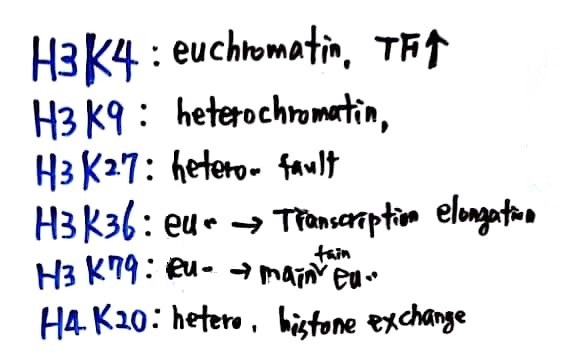 H3K4: euchromatin, TF↑
H3K9: heterochromatin,
H3K27: hetero- fault
H3K36: eu- → Transcription elongation
H3K79: eu- → maintain eu..
H4K20: hetero, histone exchange